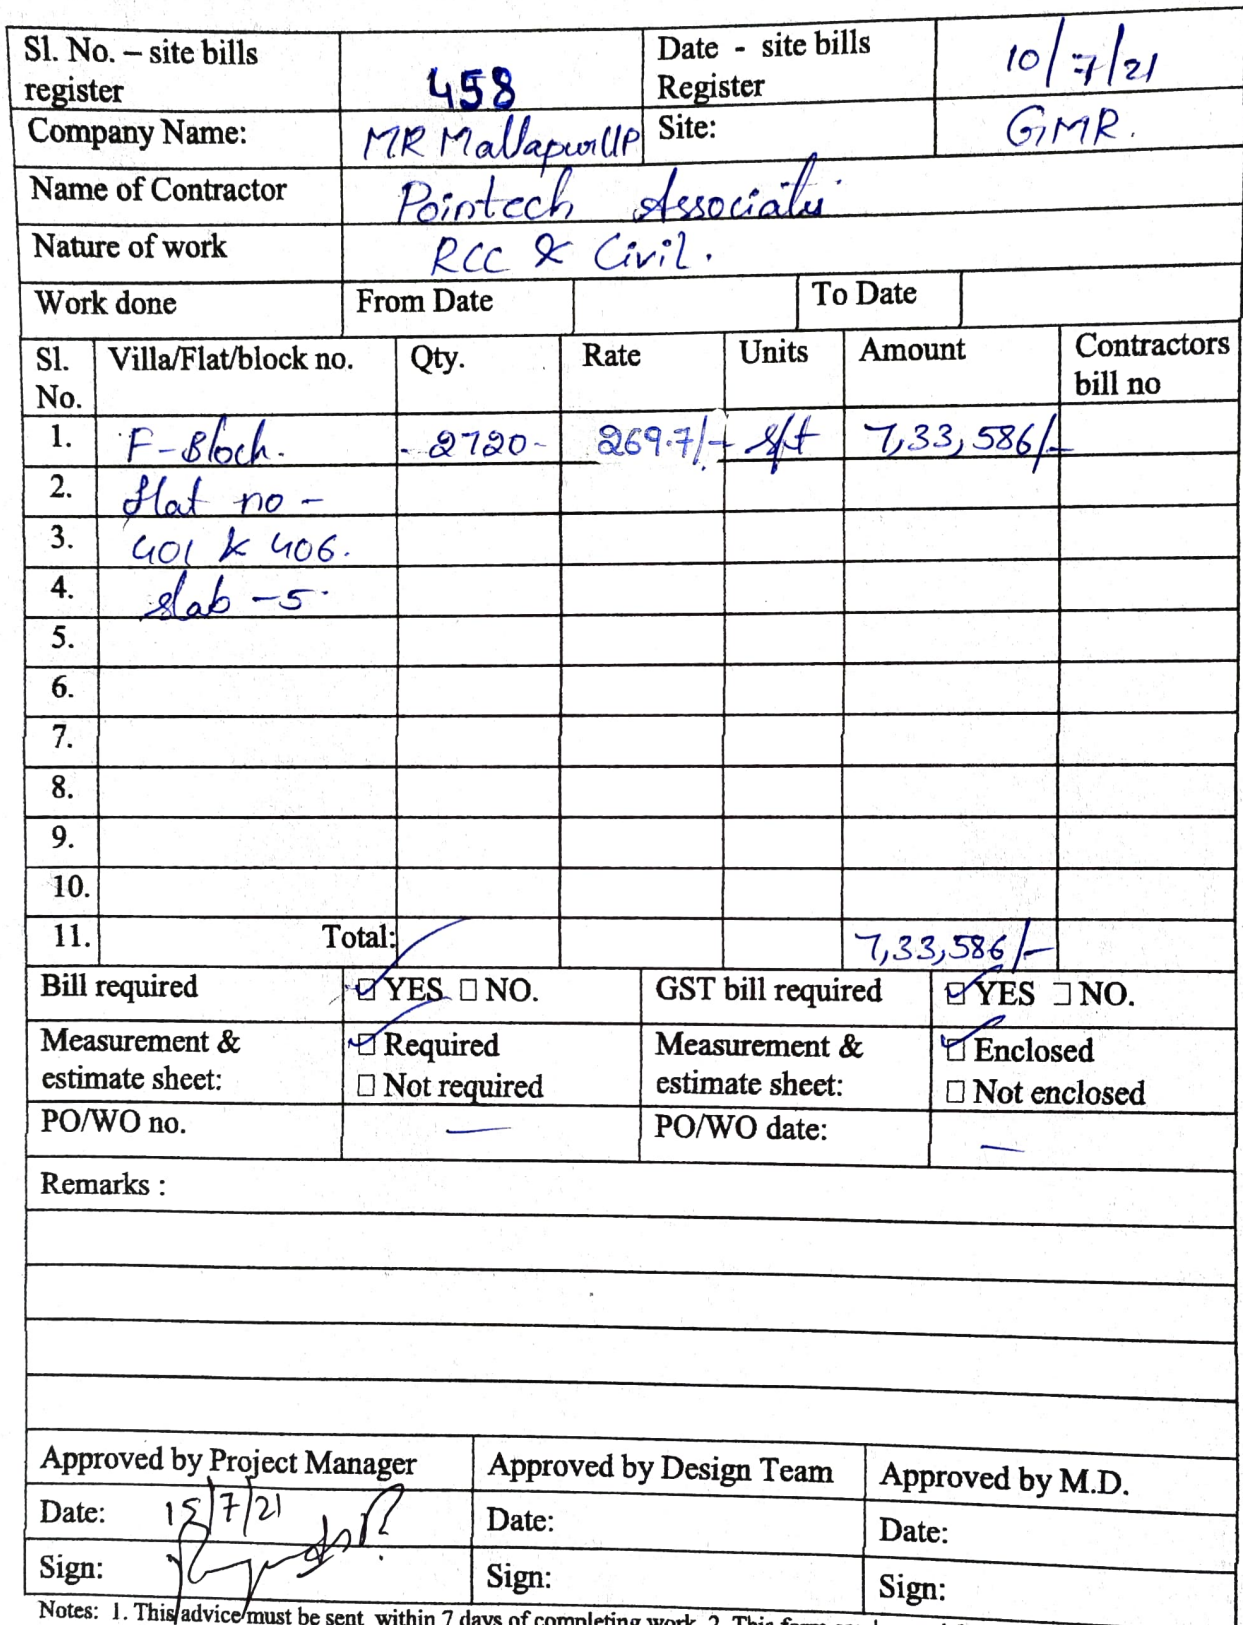 Sl. No. – site bills register 458 Date - site bills Register 10/7/21
Company Name: MR Mallapur LLP Site: GMR.
Name of Contractor Pointech Associates
Nature of work RCC & Civil.
Work done From Date To Date
Sl. No. Villa/Flat/block no. Qty. Rate Units Amount Contractors bill no
1. F-Block. -2720- 269.7/- sft 7,33,586/-
2. flat no -
3. 401 & 406.
4. slab -5.
5.
6.
7.
8.
9.
10.
11. Total: 7,33,586/-
Bill required ☑ YES ☐ NO. GST bill required ☑ YES ☐ NO.
Measurement & estimate sheet: ☑ Required ☐ Not required Measurement & estimate sheet: ☑ Enclosed ☐ Not enclosed
PO/WO no. — PO/WO date: —
Remarks :
Approved by Project Manager Approved by Design Team Approved by M.D.
Date: 15/7/21 Date: Date:
Sign: Sign: Sign:
Notes: 1. This advice must be sent within 7 days of completing work. 2. This form